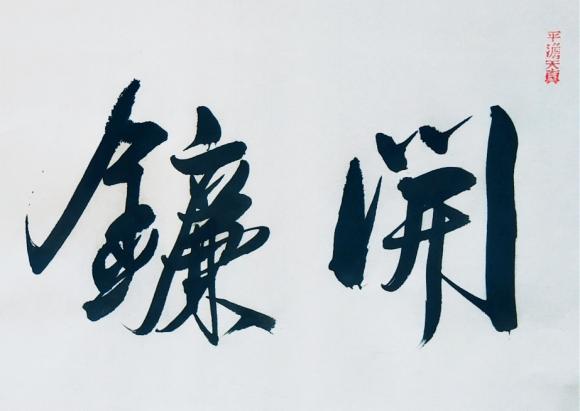 平澹天真
開鐮